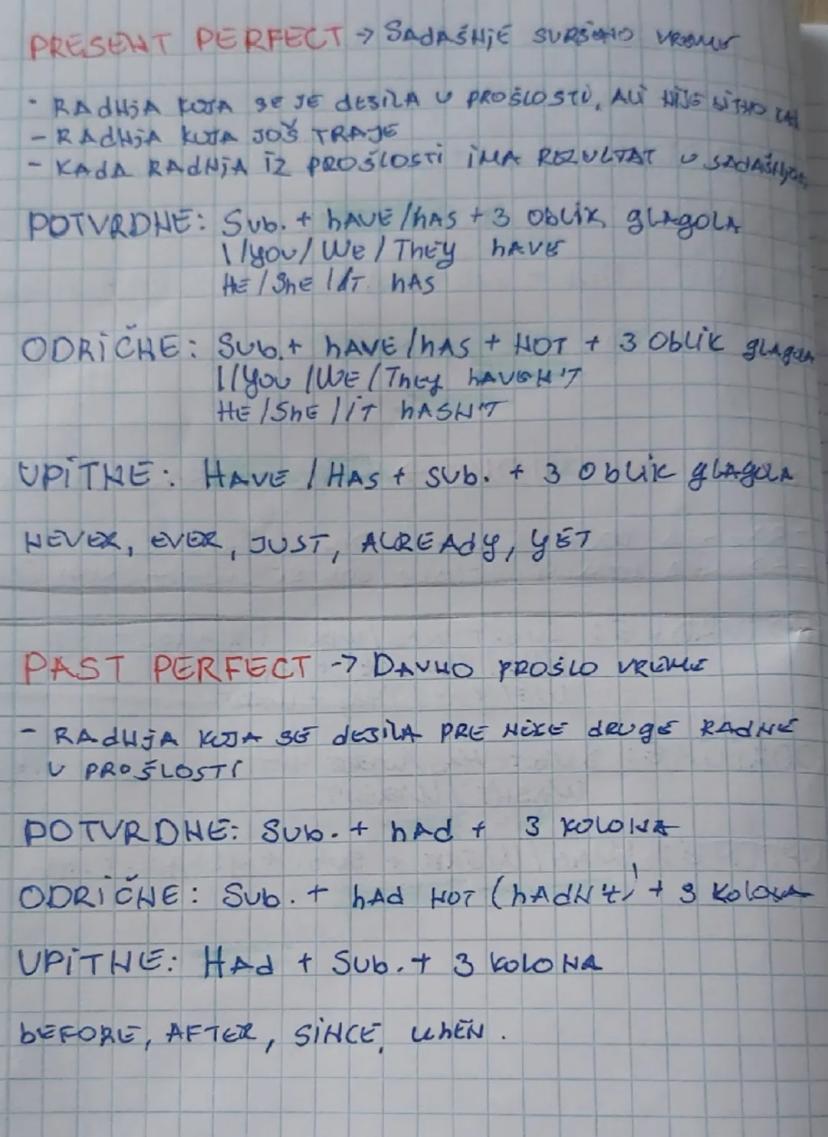 PRESENT PERFECT → SADAŠNJE SVRŠENO VREME
- RADNJA KOJA SE JE DESILA U PROŠLOSTI, ALI NIJE BITNO KAD
- RADNJA KOJA JOŠ TRAJE
- KADA RADNJA IZ PROŠLOSTI IMA REZULTAT U SADAŠNJOSTI
POTVRDNE: SUB. + HAVE/HAS + 3 OBLIK GLAGOLA
I/YOU/WE/THEY HAVE
HE/SHE/IT HAS
ODRIČNE: SUB. + HAVE/HAS + NOT + 3 OBLIK GLAGOLA
I/YOU/WE/THEY HAVEN'T
HE/SHE/IT HASN'T
UPITNE: HAVE/HAS + SUB. + 3 OBLIK GLAGOLA
NEVER, EVER, JUST, ALREADY, YET
PAST PERFECT → DAVNO PROŠLO VREME
- RADNJA KOJA SE DESILA PRE NEKE DRUGE RADNJE
U PROŠLOSTI
POTVRDNE: SUB. + HAD + 3 KOLONA
ODRIČNE: SUB. + HAD NOT (HADN'T) + 3 KOLONA
UPITNE: HAD + SUB. + 3 KOLONA
BEFORE, AFTER, SINCE, WHEN.